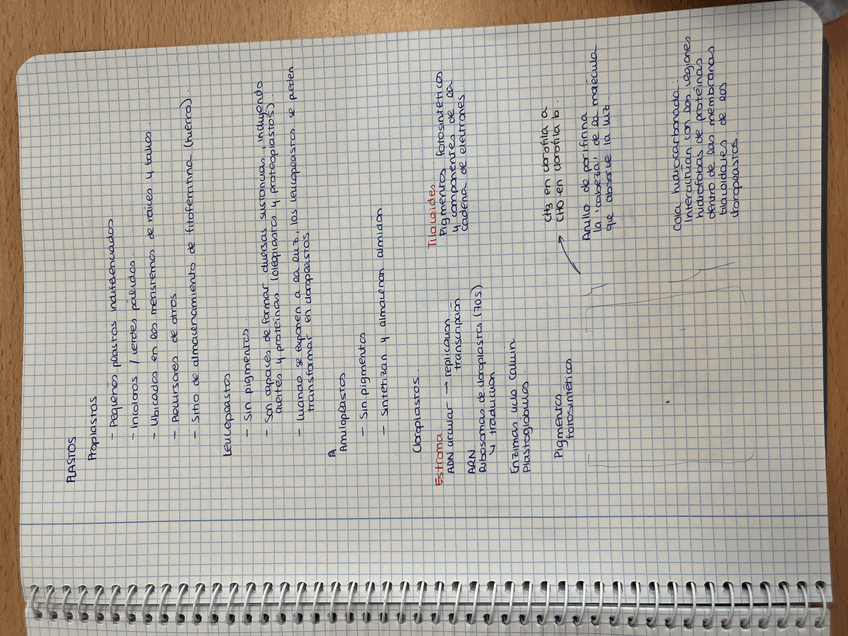 PLASTOS
Proplastos
- Pequeños plastos indiferenciados
- Incoloros / verdes pálidos.
- Ubicados en los meristemos de raíces y tallos.
- Precursores de otros
- Sitio de almacenamiento de fitoferritina (hierro).
Leucoplastos
- Sin pigmentos.
- Son capaces de formar diversas sustancias, incluyendo
aceites y proteínas (oleoplastos y proteoplastos).
- Cuando se exponen a la luz, los leucoplastos se pueden
transformar en cloroplastos.
A
Amiloplastos
- Sin pigmentos
- Sintetizan y almacenan almidón
Cloroplastos.
Estroma
ADN circular → replicación
transcripción
ARN
Ribosomas de cloroplastos (70S)
↳ traducción
Enzimas ciclo Calvin
Plastoglóbulos.
Tilacoides
Pigmentos fotosintéticos
y componentes de la
cadena de electrones
Pigmentos
fotosintéticos
CH3 en clorofila a
CHO en clorofila b.
Anillo de porifinna
la "cabeza" de la molécula
que absorbe la luz
Cola hidrocarbonada:
Interactúan con las regiones
hidrófobas de proteínas
dentro de las membranas
tilacoidales de los
cloroplastos.